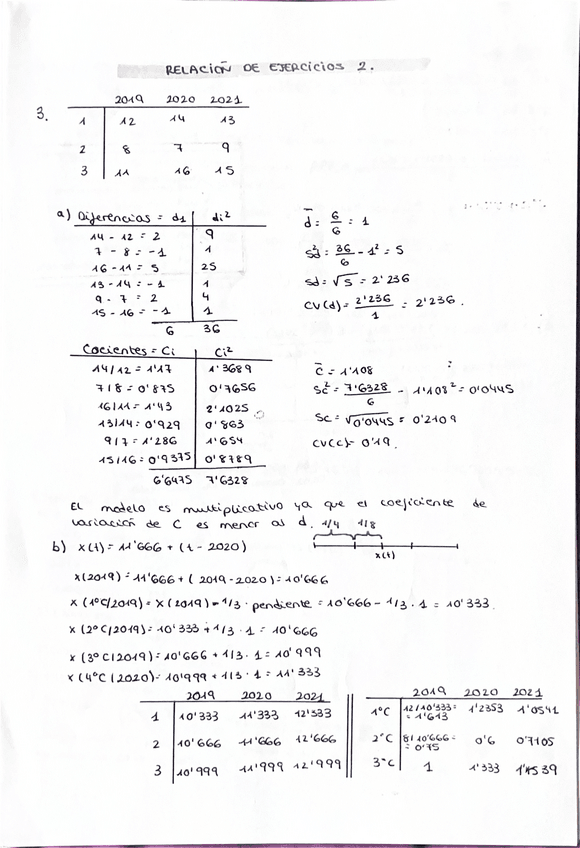 RELACIÓN DE EJERCICIOS 2.
3.
2019 2020 2021
1 12 14 13
2 8 7 9
3 11 16 15
a) Diferencias = d1 di²
14 - 12 = 2 9
7 - 8 = -1 1
16 - 11 = 5 25
13 - 14 = -1 1
9 - 7 = 2 4
15 - 16 = -1 1
6 36
d̄ = 6/6 = 1
Sd² = 36/6 - 1² = 5
Sd = √5 = 2'236
CV(d) = 2'236/1 = 2'236.
Cocientes = Ci Ci²
14/12 = 1'17 1'3689
7/8 = 0'875 0'7656
16/11 = 1'43 2'1025
13/14 = 0'929 0'863
9/7 = 1'286 1'654
15/16 = 0'9375 0'8789
6'6475 7'6328
c̄ = 1'108
Sc² = 7'6328/6 - 1'108² = 0'0445
Sc = √0'0445 = 0'2109
CV(c) = 0'19.
El modelo es multiplicativo ya que el coeficiente de
variación de C es menor al d.
1/4 1/8
x(t)
b) x(t) = 11'666 + (t - 2020)
x(2019) = 11'666 + (2019 - 2020) = 10'666
x(1ºC/2019) = x(2019) - 1/3 · pendiente = 10'666 - 1/3 · 1 = 10'333.
x(2ºC/2019) = 10'333 + 1/3 · 1 = 10'666
x(3ºC/2019) = 10'666 + 1/3 · 1 = 10'999
x(4ºC/2020) = 10'999 + 1/3 · 1 = 11'333
2019 2020 2021
1 10'333 11'333 12'333
2 10'666 11'666 12'666
3 10'999 11'999 12'999
2019 2020 2021
1ºC 12/10'333 = = 1'613 1'2353 1'0541
2ºC 8/10'666 = = 0'75 0'6 0'7105
3ºC 1 1'333